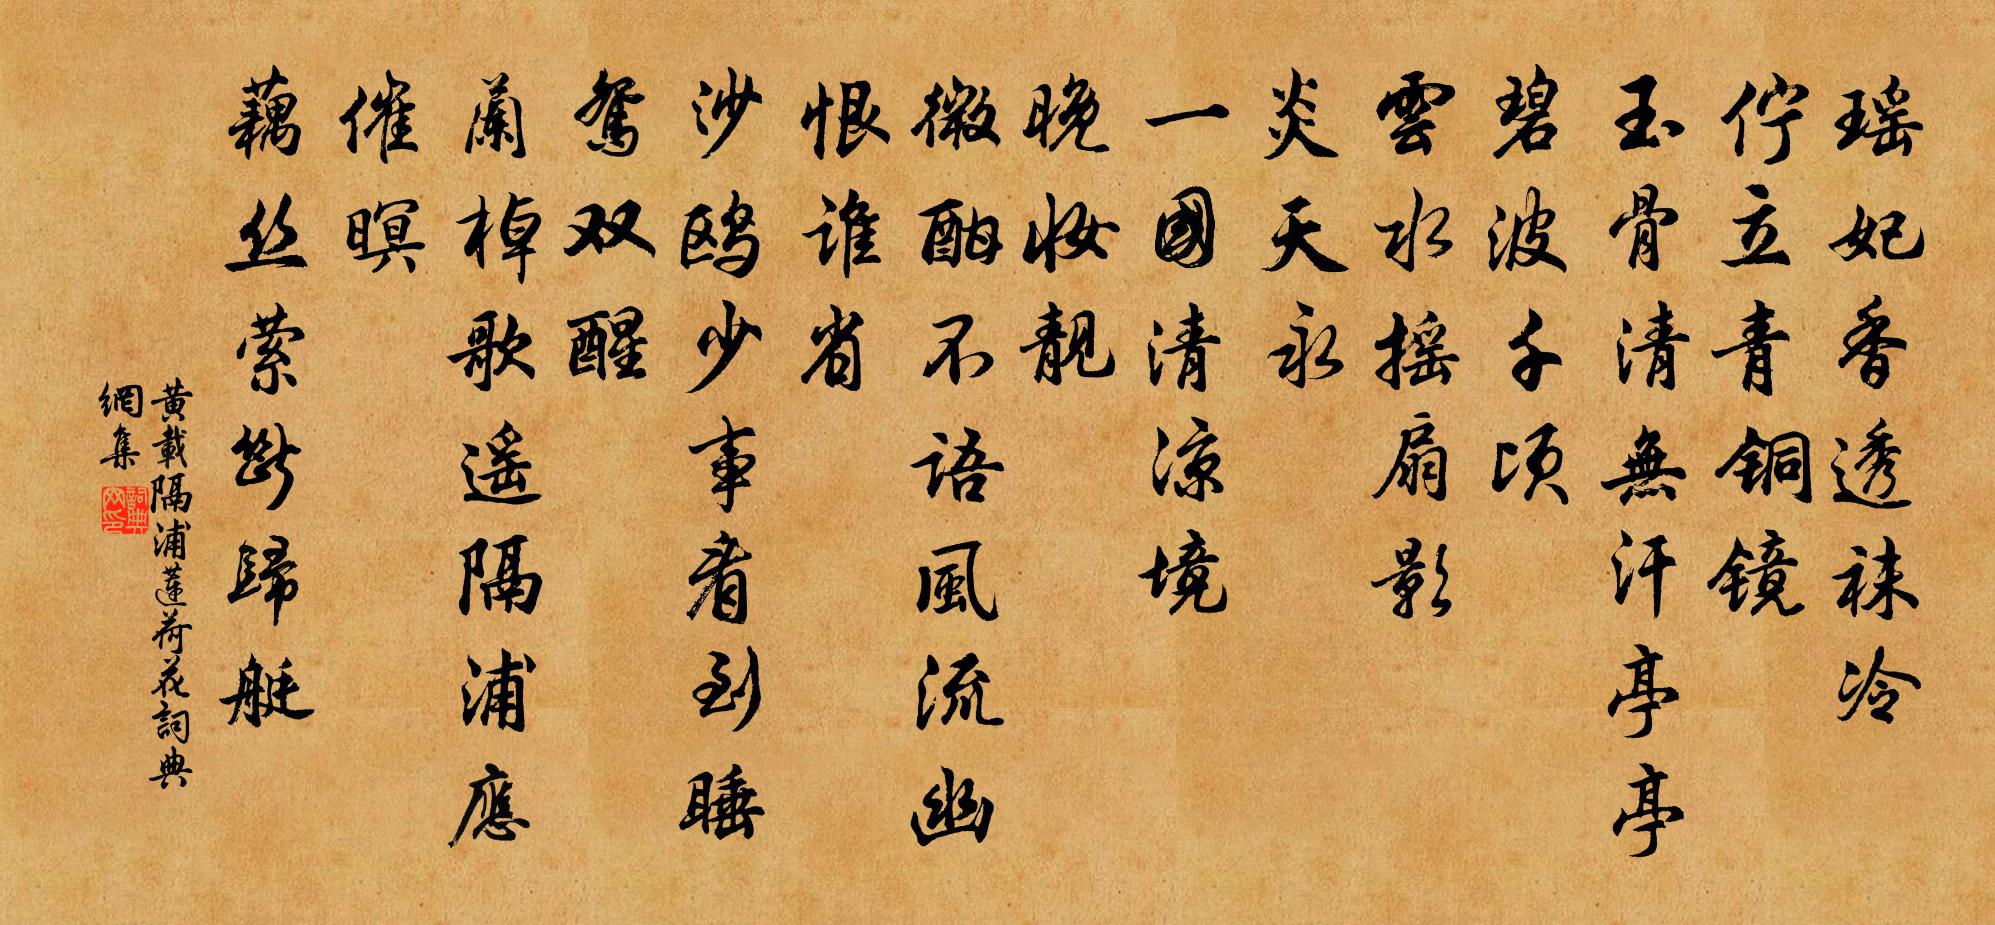 瑶妃香透袜冷
伫立青铜镜
玉骨清無汗亭亭
碧波千顷
雲水摇扇影
炎天永
一國清凉境
晚妆靓
微酣不语風流幽
恨谁省
沙鸥少事看到睡
鸳双醒
蘭棹歌遥隔浦應
催暝
藕丝萦断歸艇
黄載隔浦莲荷花詞典
網集
詞典
网印